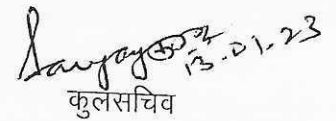 13.01.23
कुलसचिव